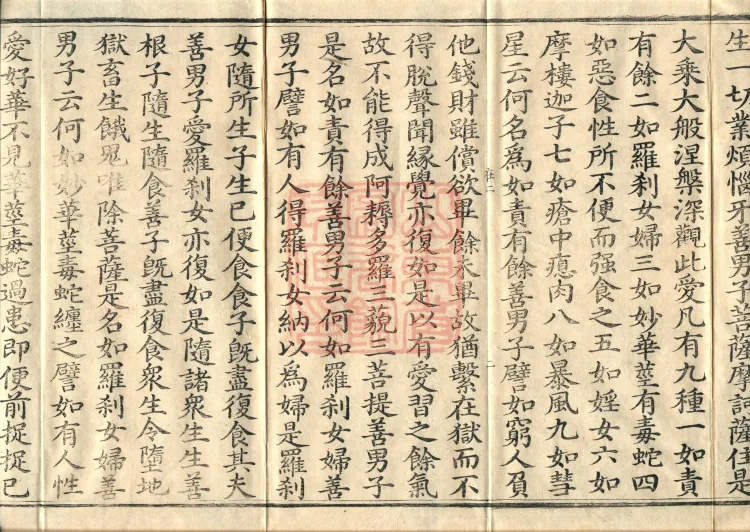 生一切業煩惱牙善男子菩薩摩訶薩住是
大乘大般涅槃深觀此愛凡有九種一如責
有餘二如羅刹女婦三如妙華莖有毒蛇四
如惡食性所不便而强食之五如婬女六如
摩樓迦子七如瘡中瘜肉八如暴風九如彗
星云何名爲如責有餘善男子譬如窮人負
他錢財雖償欲畢餘未畢故猶繫在獄而不
得脫聲聞緣覺亦復如是以有愛習之餘氣
故不能得成阿耨多羅三藐三菩提善男子
是名如責有餘善男子云何如羅刹女婦善
男子譬如有人得羅刹女納以爲婦是羅刹
女隨所生子生已便食食子旣盡復食其夫
善男子愛羅刹女亦復如是隨諸衆生生善
根子隨生隨食善子旣盡復食衆生令墮地
獄畜生餓鬼唯除菩薩是名如羅刹女婦善
男子云何如妙華莖毒蛇纏之譬如有人性
愛好華不見華莖毒蛇過患即便前捉捉已